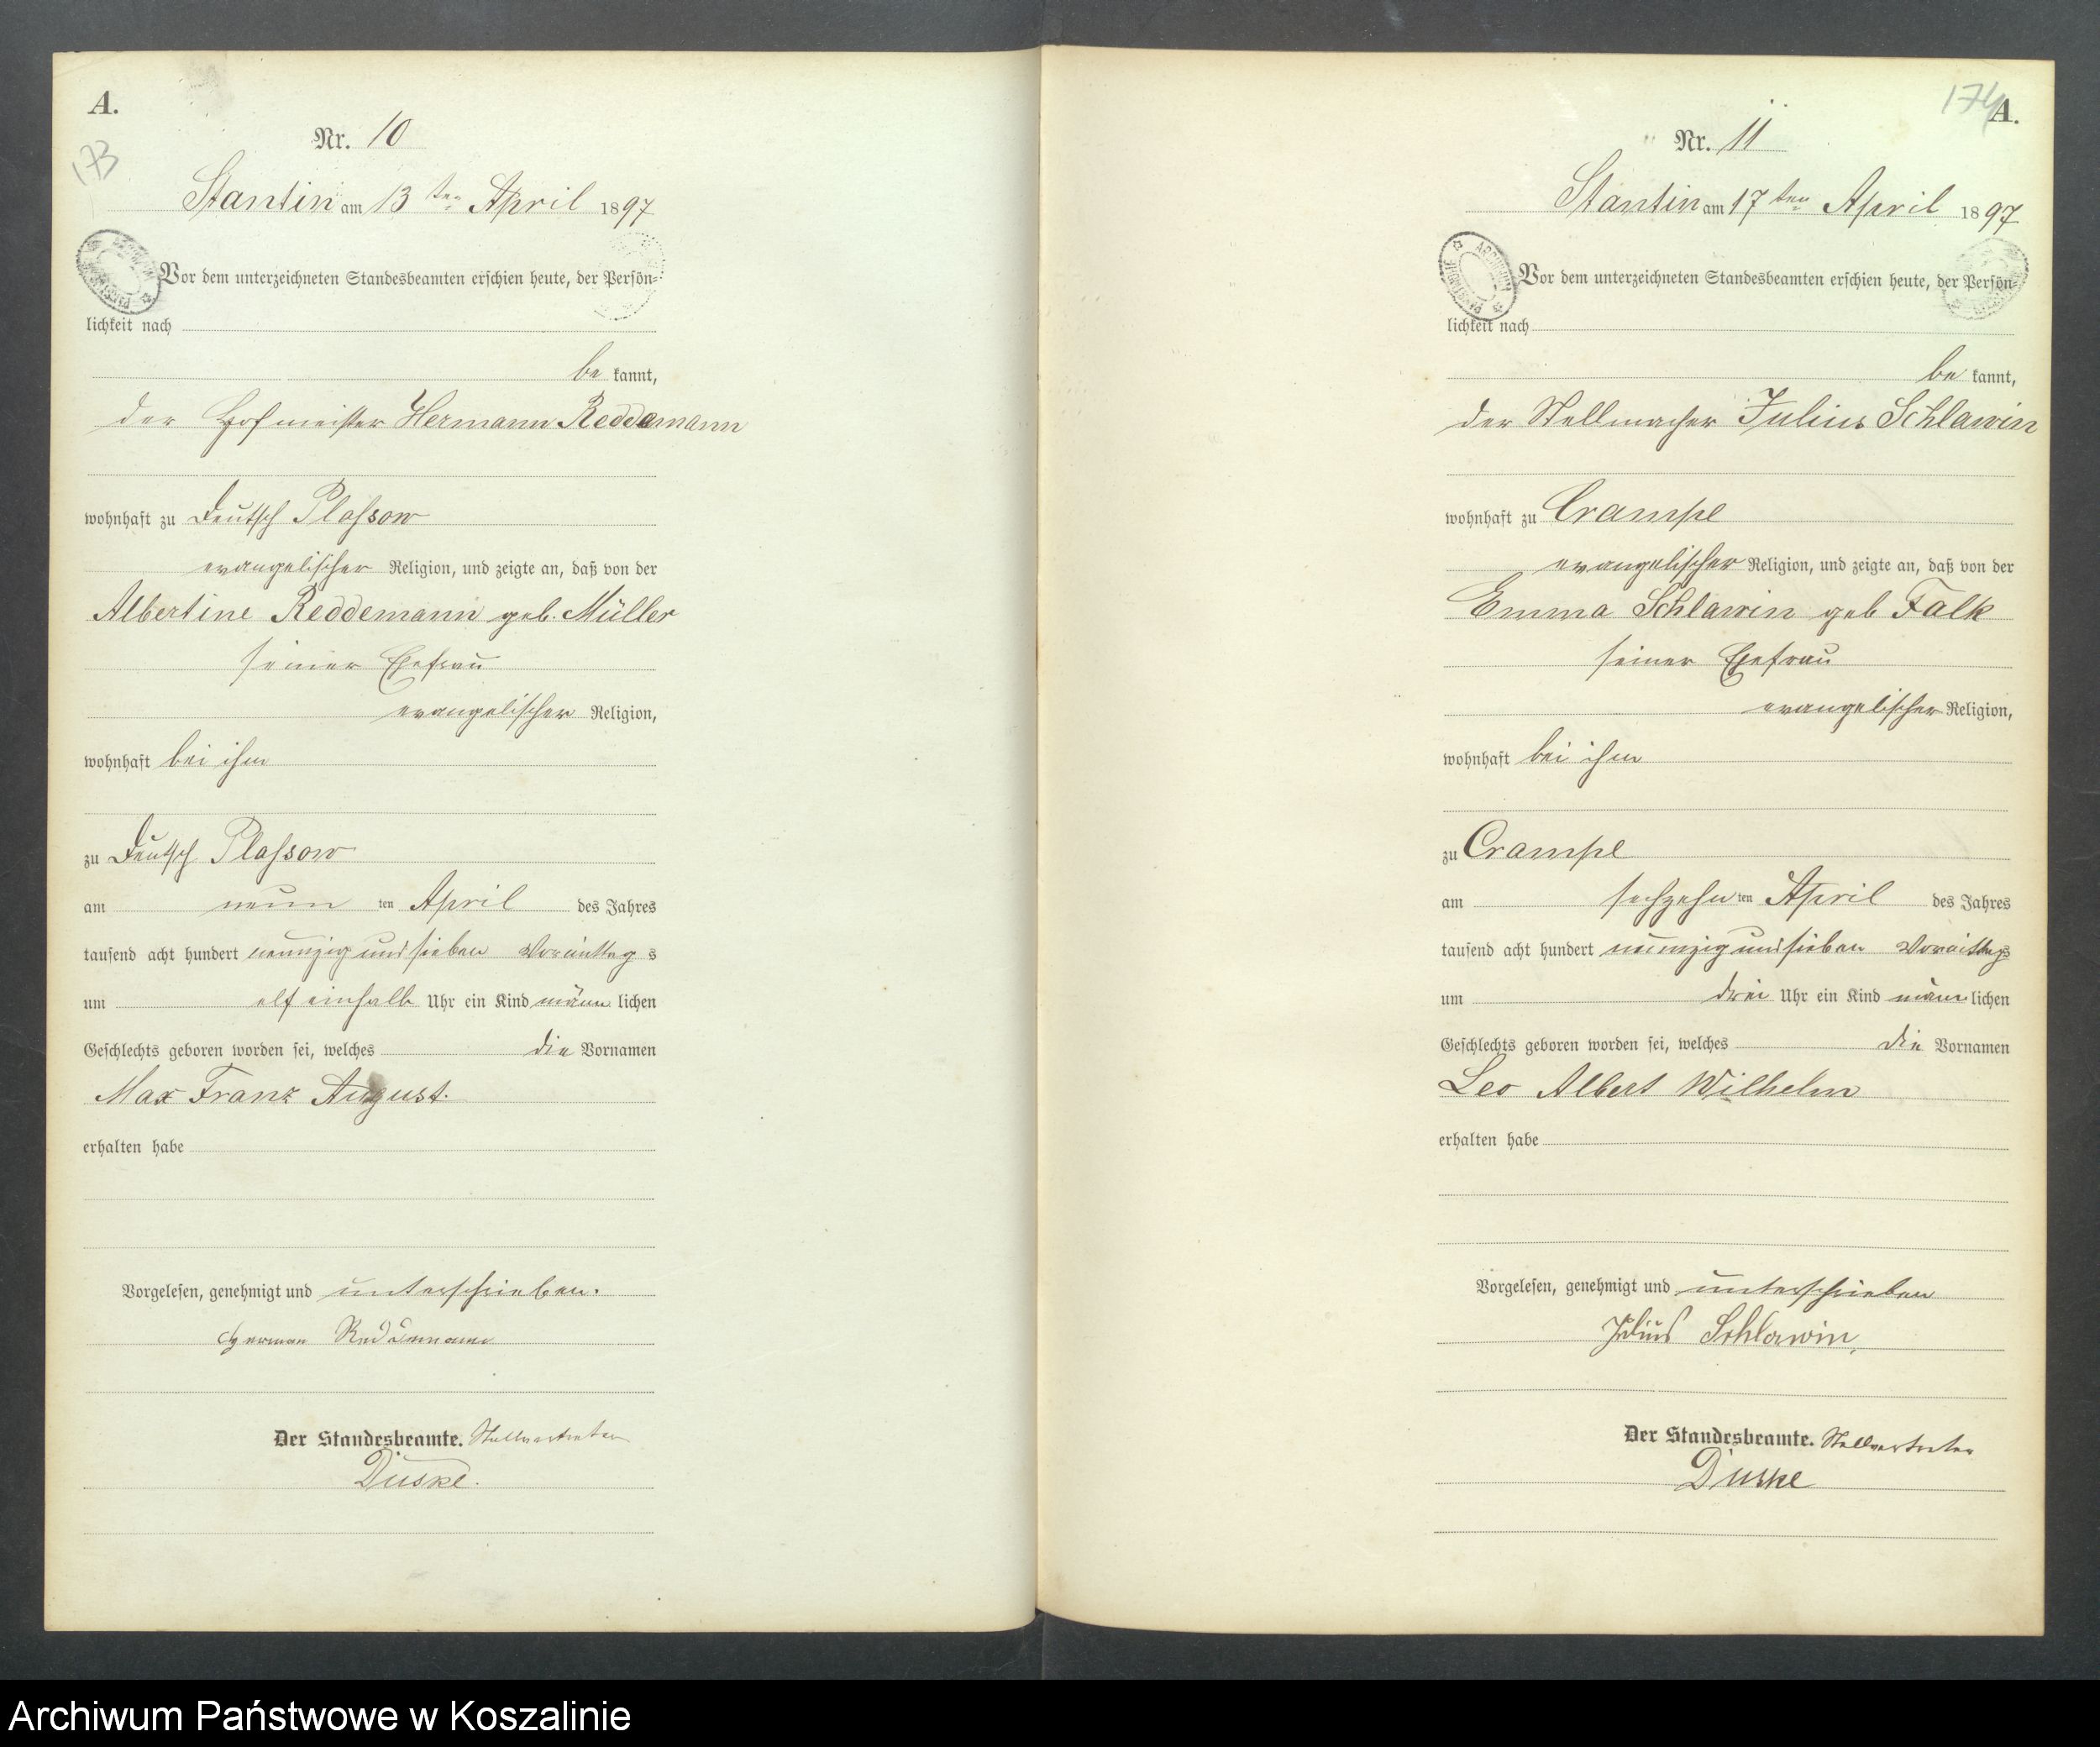 A.
173
Nr. 10
Stantin am 13 ten April 1897
Vor dem unterzeichneten Standesbeamten erschien heute, der Persön-
lichkeit nach
be kannt,
der Hofmeister Hermann Reddemann
wohnhaft zu Deutsch Plassow
evangelischer Religion, und zeigte an, daß von der
Albertine Reddemann geb. Müller
seiner Ehefrau
evangelischer Religion,
wohnhaft bei ihm
zu Deutsch Plassow
am neun ten April des Jahres
tausend acht hundert neunzig und sieben Vormittag s
um elf einhalb Uhr ein Kind männ lichen
Geschlechts geboren worden sei, welches die Vornamen
Max Franz August.
erhalten habe
Vorgelesen, genehmigt und unterschrieben.
Herman Reddemann
Der Standesbeamte. Stellvertreter
Duske.
174
A.
Nr. 11
Stantin am 17 ten April 1897
ARCHIWUM PAŃSTWOWE
Vor dem unterzeichneten Standesbeamten erschien heute, der Persön-
lichkeit nach
be kannt,
der Stellmacher Julius Schlawin
wohnhaft zu Crampe
evangelischer Religion, und zeigte an, daß von der
Emma Schlawin geb Falk
seiner Ehefrau
evangelischer Religion,
wohnhaft bei ihm
zu Crampe
am sechzehn ten April des Jahres
tausend acht hundert neunzig und sieben Vormittags
um drei Uhr ein Kind männ lichen
Geschlechts geboren worden sei, welches die Vornamen
Leo Albert Wilhelm
erhalten habe
Vorgelesen, genehmigt und unterschrieben
Julius Schlawin,
Der Standesbeamte. Stellvertreter
Duske
Archiwum Państwowe w Koszalinie